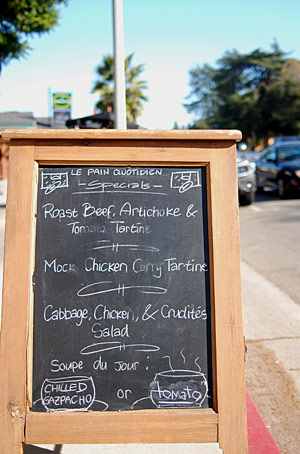 LE PAIN QUOTIDIEN
Specials
Roast Beef, Artichoke &
Tomato Tartine
Mock Chicken Curry Tartine
Cabbage, Chicken, & Crudités
Salad
Soupe du jour:
CHILLED
GAZPACHO
or
TOMATO